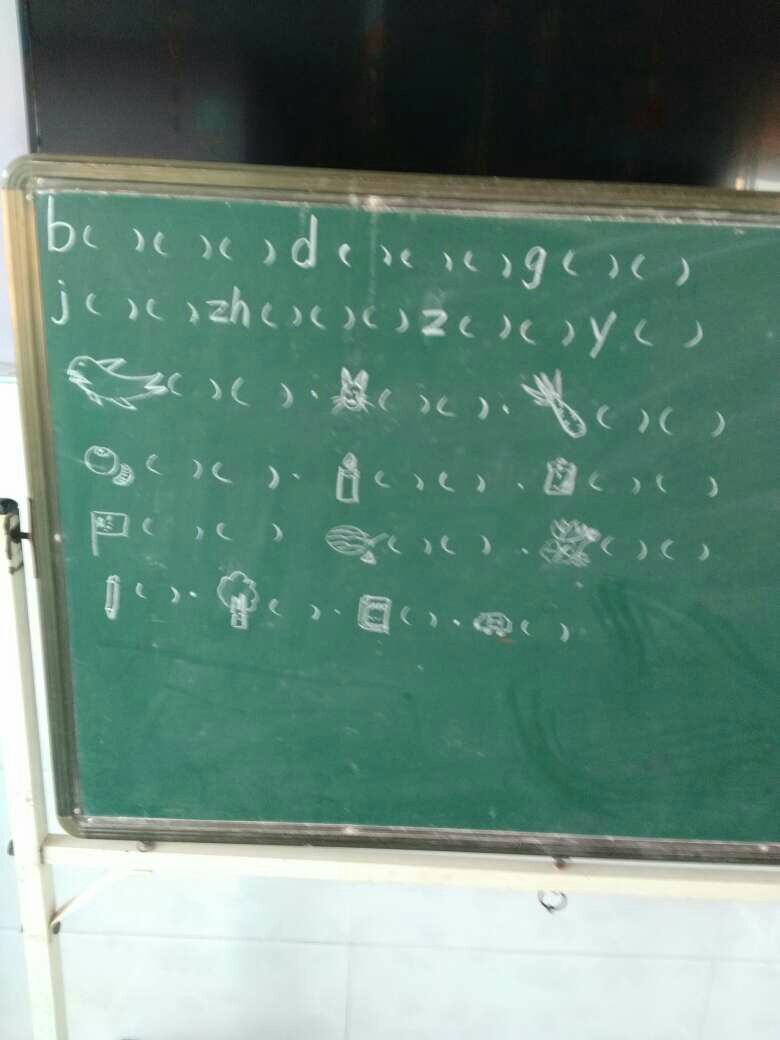 b( )( )( )d( )( )( )g( )( )
j( )( )zh( )( )( )z( )( )y( )
( )( ).( )( ).( )( )
( )( ).( )( ).( )( )
( )( )( )( ).( )( )
( ).( ).( ).( )